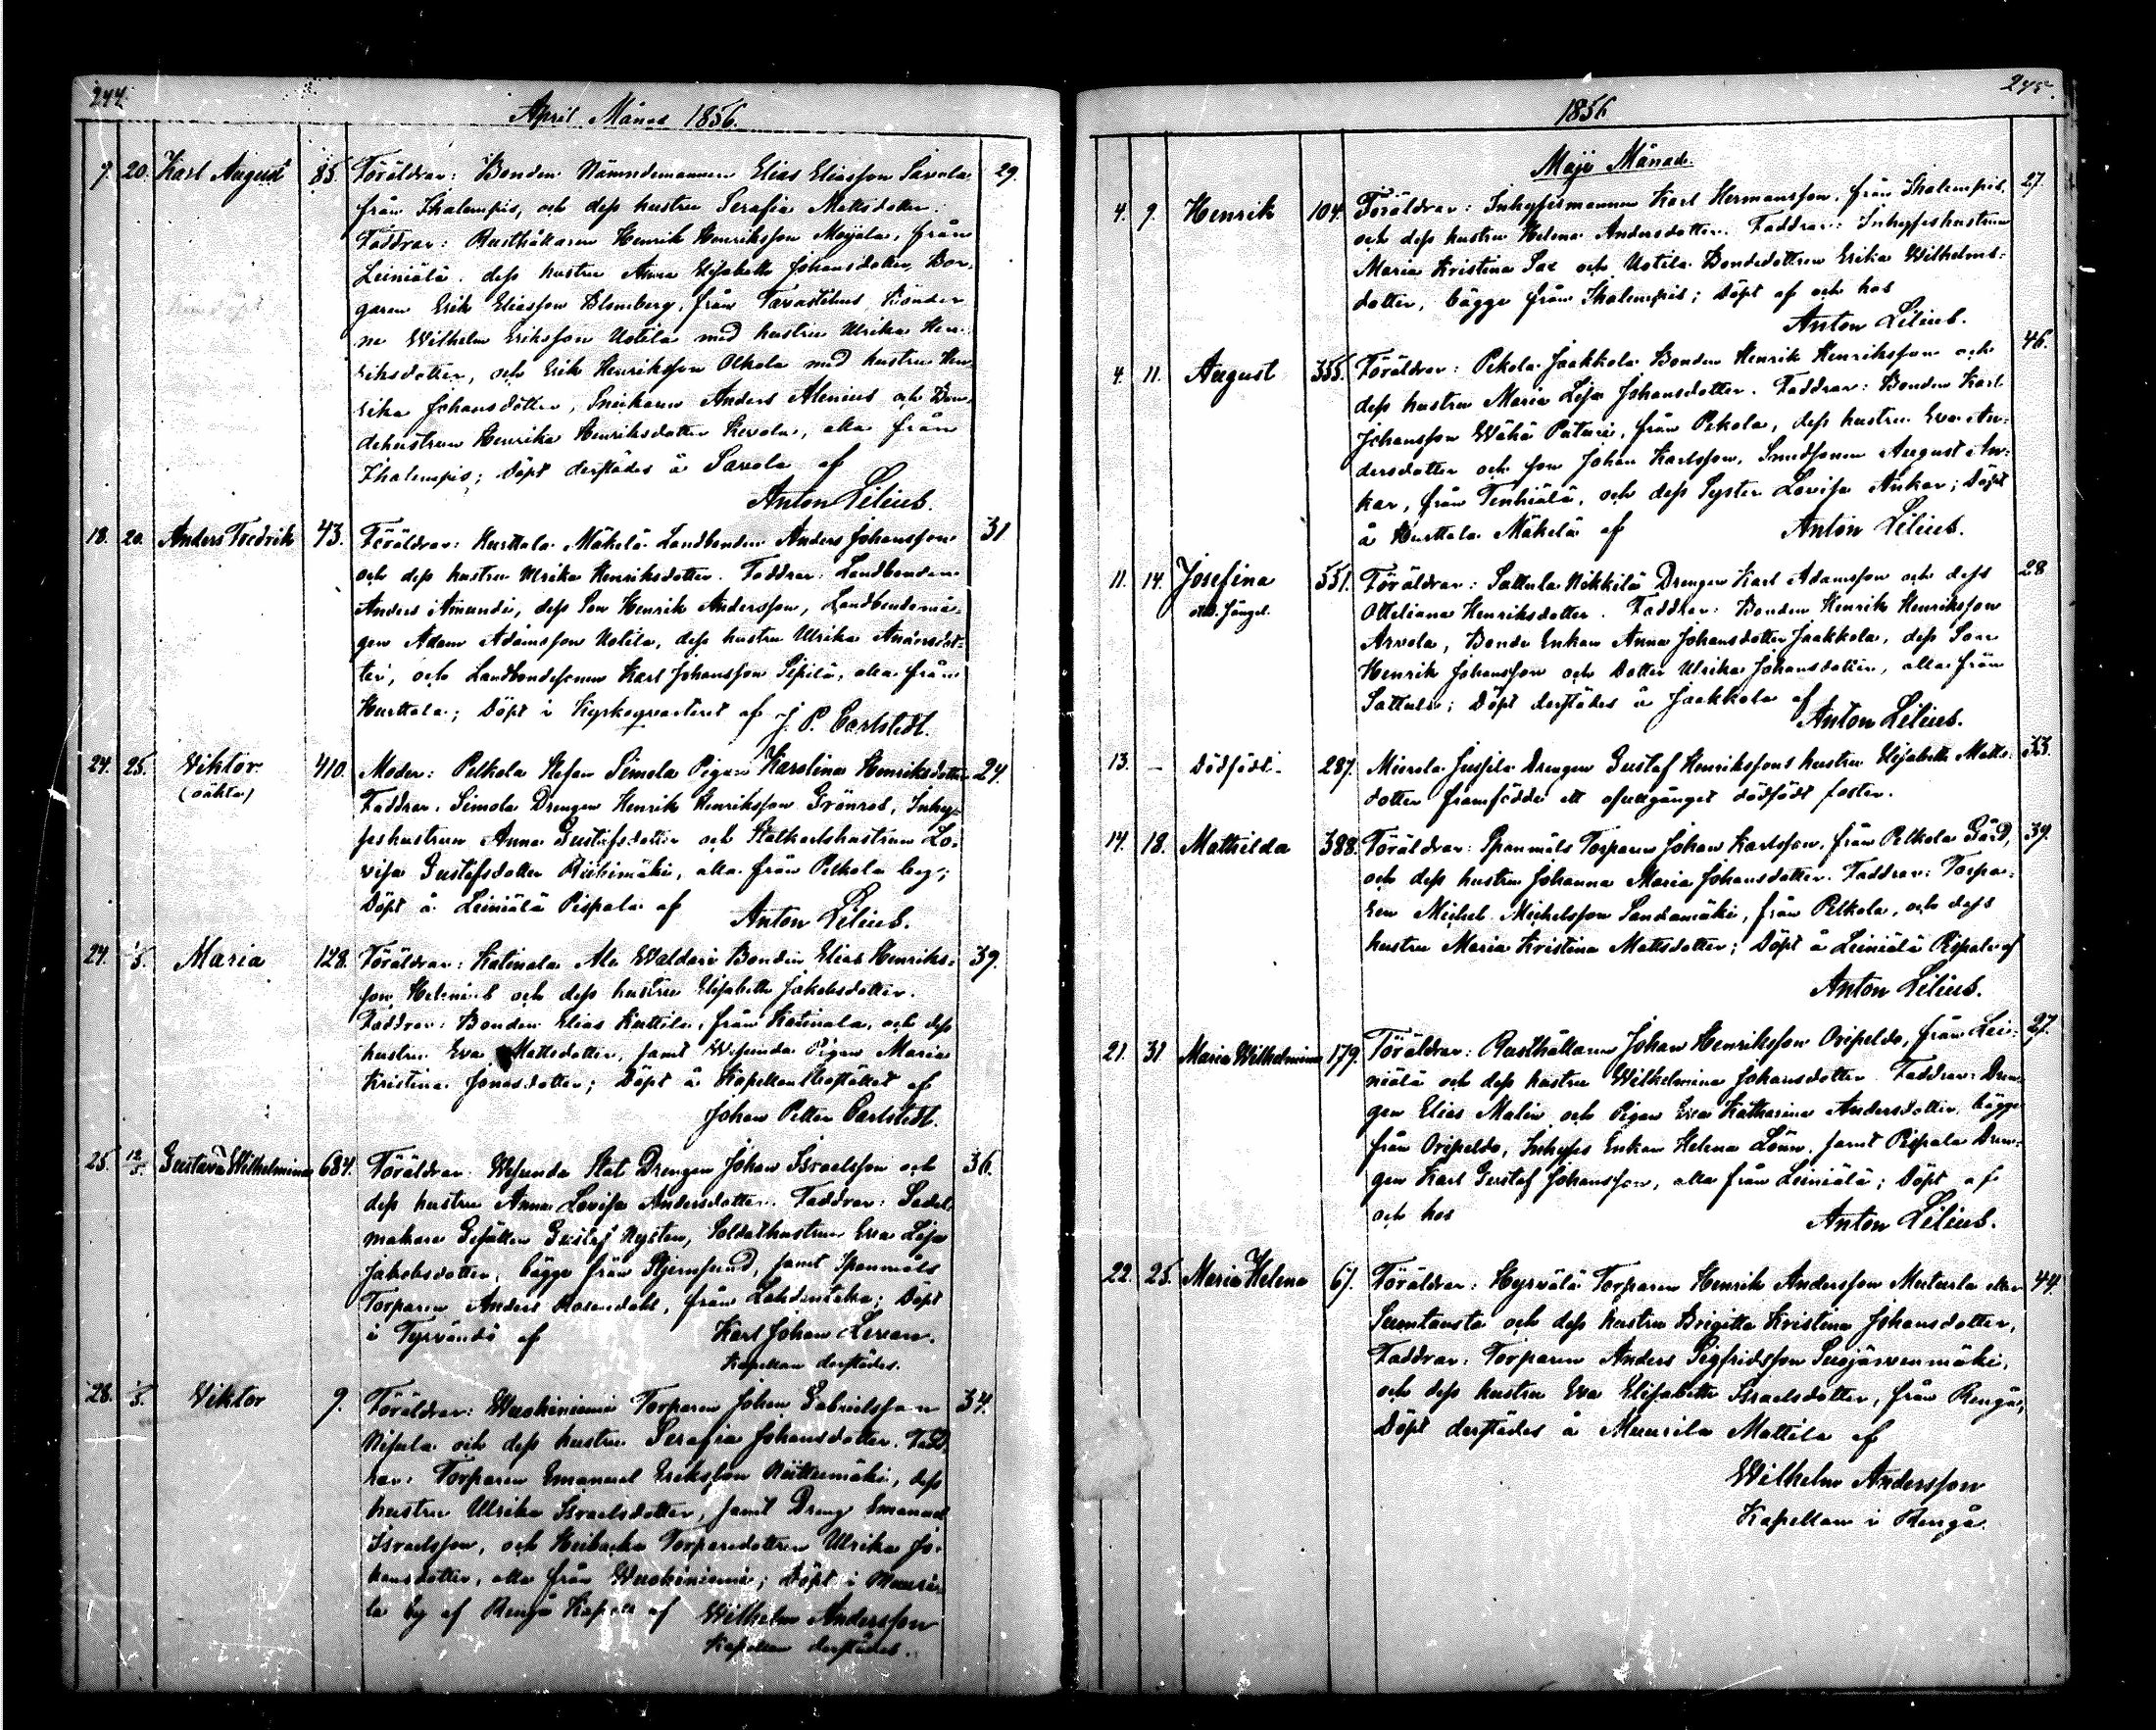 244.
April Månad 1856.
7. 20. Karl August 85. Föräldrar: Bonden Nämndemannen Elias Eliasson Savola 29.
från Ihalempis, och dess hustru Serafia Mattsdotter.
Faddrar: Rusthållaren Henrik Henriksson Moijala, från
Leiniälä, dess hustru Anna Elisabeth Johansdotter, Bor-
garen Erik Eliasson Blomberg, från Tavastehus, Bönder-
ne Wilhelm Eriksson Uotila med hustru Ulrika Hen-
riksdotter, och Erik Henriksson Olkola med hustru Hen-
rika Johansdotter, Snickaren Anders Alenius och Bon-
dehustrun Henrika Henriksdotter Kevola, alla från
Ihalempis; Döpt derstädes å Savola af
Anton Lilius.
18. 20. Anders Fredrik 43. Föräldrar: Hurttala Mäkelä Landbonden Anders Johansson 31
och dess hustru Ulrika Henriksdotter. Faddrar: Landbonden
Anders Amundi, dess Son Henrik Andersson, Landbondemå-
gen Adam Adamsson Uotila, dess hustru Ulrika Andersdot-
ter, och Landbondesonen Karl Johansson Sipilä, alla från
Hurttala; Döpt i Kyrkoqvarteret af J. P. Carlstedt.
24. 25. Viktor 410. Moder: Pelkola Simola Pigan Karolina Henriksdotter 24.
(oäkta) Faddrar: Simola Drengen Henrik Henriksson Grönroos, Inhy-
seshustrun Anna Gustafsdotter och Statkarlshustrun Lo-
visa Gustafsdotter Riihimäki, alla från Pelkola by;
Döpt å Leiniälä Pispala af Anton Lilius.
24. 1/5. Maria 128. Föräldrar: Katinala Ala Waldari Bonden Elias Henriks- 39.
son Helenius och dess hustru Elisabeth Jakobsdotter.
Faddrar: Bonden Elias Kuttila, från Katinala, och dess
hustru Eva Mattsdotter, samt Wesunda Pigan Maria
Kristina Jonasdotter; Döpt å Kapellansbostället af
Johan Petter Carlstedt.
25. 12/5. Gustava Wilhelmina 684. Föräldrar: Wesunda Stat Drengen Johan Israelsson och 36.
dess hustru Anna Lovisa Andersdotter. Faddrar: Sadel-
makare Gesällen Gustaf Nysten, Soldathustrun Eva Lisa
Jakobsdotter, bägge från Stjernsund, samt Spanmåls
Torparen Anders Rosendahl, från Lahdentaka; Döpt
i Tyrväntö af Karl Johan Levan.
Kapellan derstädes.
28. 1/5. Viktor 9. Föräldrar: Wuohiniemi Torparen Johan Gabrielsson 34.
Nisula och dess hustru Serafia Johansdotter. Fadd-
rar: Torparen Emanuel Eriksson Niittumäki, dess
hustru Ulrika Israelsdotter, samt Dreng Emanuel
Israelsson, och Torparedottren Ulrika Jo-
hansdotter, alla från Wuohiniemi; Döpt i Muuri-
la by af Rengå Kapell af Wilhelm Andersson
Kapellan derstädes.
245.
1856
Maji Månad.
4. 9. Henrik 104. Föräldrar: Inhysesmannen Karl Hermansson, från Ihalempis, 27.
och dess hustru Helena Andersdotter. Faddrar: Inhyseshustrun
Maria Kristina Sac och Uotila Bondedottren Erika Wilhelms-
dotter, bägge från Ihalempis; Döpt af och hos
Anton Lilius.
4. 11. August 355. Föräldrar: Pekola Jaakkola Bonden Henrik Henriksson och 46.
dess hustru Maria Lisa Johansdotter. Faddrar: Bonden Karl
Johansson Wähä Paturi, från Pekola, dess hustru Eva An-
dersdotter och son Johan Karlsson, Smedsonen August An-
kar, från Tenhiälä, och dess Syster Lovisa Ankar; Döpt
å Hurttala Mäkelä af Anton Lilius.
11. 14. Josefina 551. Föräldrar: Sattula Nikkilä Drengen Karl Adamsson och dess 28
Otteliana Henriksdotter. Faddrar: Bonden Henrik Henriksson
Arvola, Bonde Enkan Anna Johansdotter Jaakkola, dess Son
Henrik Johansson och Dotter Ulrika Johansdotter, alla från
Sattula; Döpt derstädes å Jaakkola af
Anton Lilius.
13. – Dödfödt. 287. Mierola Jussila Drengen Gustaf Henrikssons hustru Elisabeth Matts- 33.
dotter framfödde ett ofullgånget dödfödt foster.
14. 18. Mathilda 388. Föräldrar: Spanmåls Torparen Johan Karlsson, från Pelkola Gård, 39.
och dess hustru Johanna Maria Johansdotter. Faddrar: Torpa-
ren Michel Michelsson Sandamäki, från Pelkola, och dess
hustru Maria Kristina Mattsdotter; Döpt å Leiniälä Pispala af
Anton Lilius.
21. 31. Maria Wilhelmina 179. Föräldrar: Rusthållaren Johan Henriksson Oripeldo, från Lei- 27.
niälä och dess hustru Wilhelmina Johansdotter. Faddrar: Dren-
gen Elias Malin och Pigan Eva Katharina Andersdotter, bägge
från Oripeldo, Inhyses Enkan Helena Lönn, samt Pispala Dren-
gen Karl Gustaf Johansson, alla från Leiniälä; Döpt af
och hos Anton Lilius.
22. 25. Maria Helena 67. Föräldrar: Hyrvälä Torparen Henrik Andersson eller 44.
Suontausta och dess hustru Brigitta Kristina Johansdotter,
Faddrar: Torparen Anders Sigfridsson Suojärvenmäki,
och dess hustru Eva Elisabeth Israelsdotter, från Rengå;
Döpt derstädes å Muurila Mattila af
Wilhelm Andersson
Kapellan i Rengå.